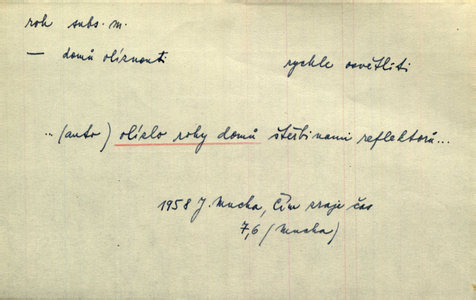 roh subs. m.
— domů olíznouti rychle osvětliti
.. (auto) olízlo rohy domů štěrbinami reflektorů...
1958 J. Mucha, Čím zraje čas
7,6 (Mucha)